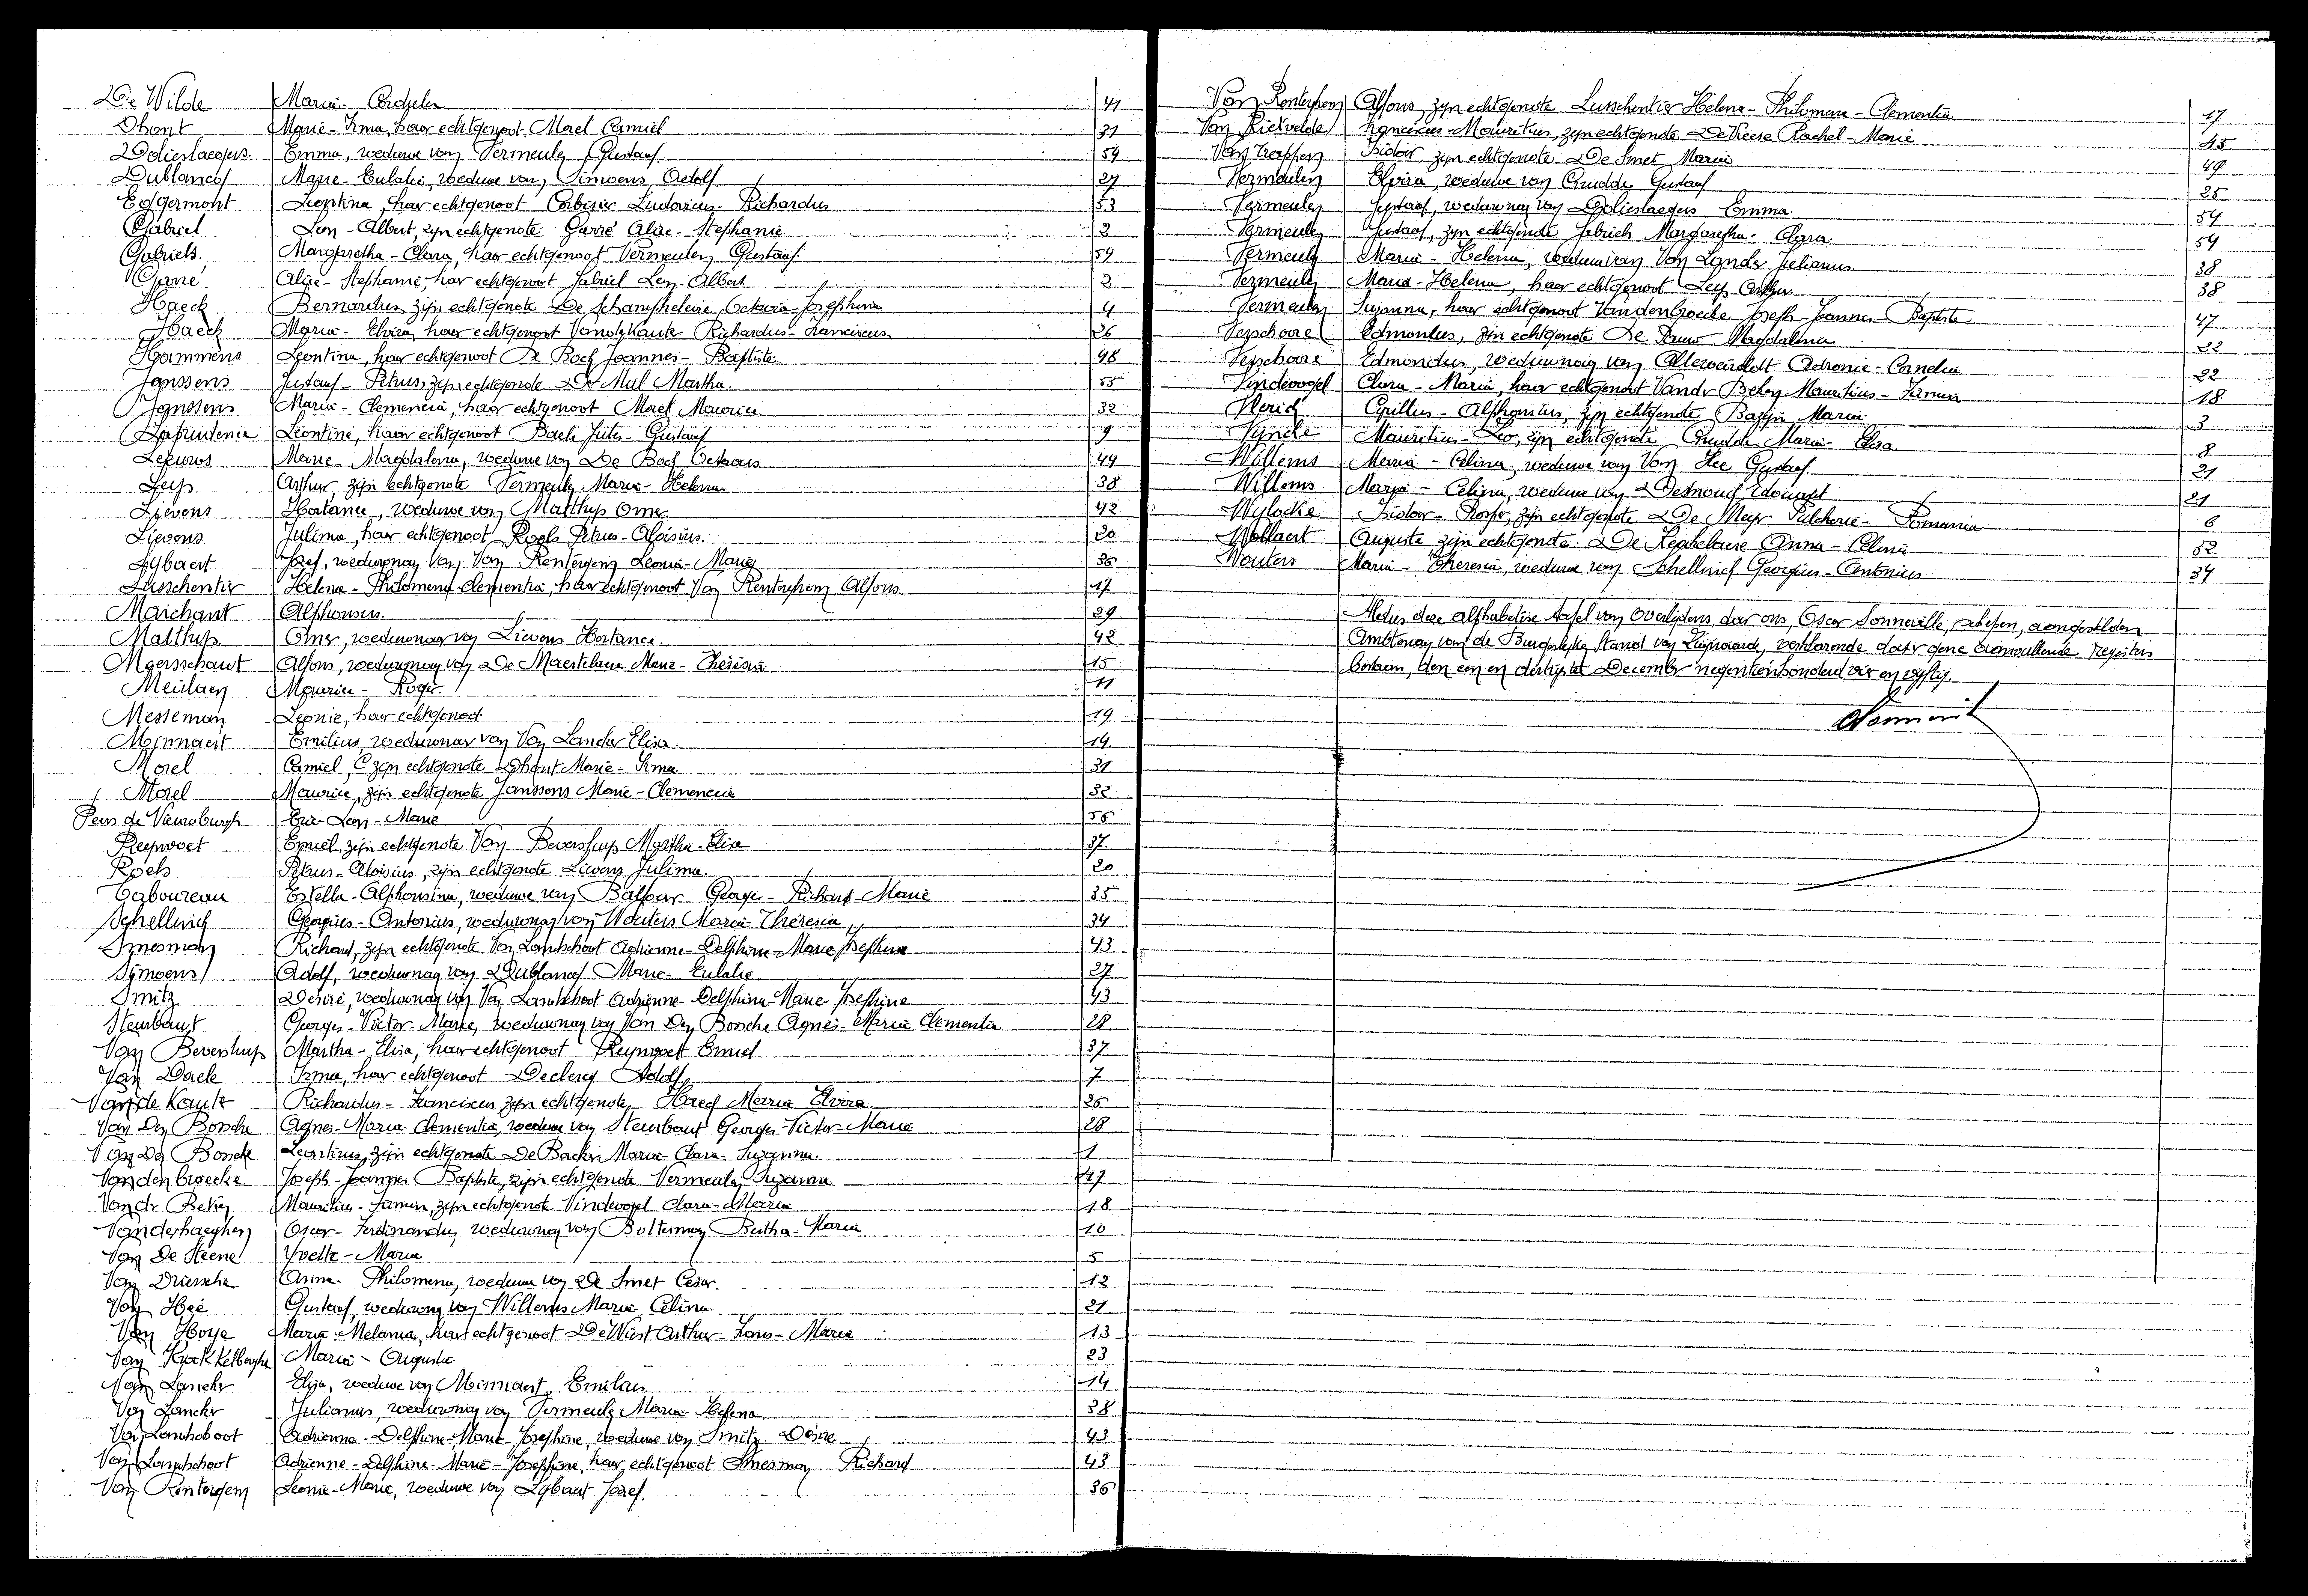 De Wilde Maria - Cordula 41
Dhont Marie - Irma, haar echtgenoot Morel Camiel 31
Dolieslaegers Emma, weduwe van Vermeulen Gustaaf 54
Dublancq Marie - Eulalie, weduwe van Simoens Adolf 27
Eggermont Leontina, haar echtgenoot Ludovicus - Richardus 53
Gabriel Leon - Albert, zijn echtgenote Garré Alice - Stephanie 2
Gabriels Margaretha - Clara, haar echtgenoot Vermeulen Gustaaf 54
Garré Alice - Stephanie, haar echtgenoot Gabriel Leon - Albert 2
Haeck Bernardus, zijn echtgenote De Schampheleire Octavia - Josephina 4
Haeck Maria - Elvira, haar echtgenoot Vandekaute Richardus - Franciscus 26
Hammens Leontina, haar echtgenoot De Bock Joannes - Baptiste 48
Janssens Gustaaf - Petrus, zijn echtgenote De Mul Martha 55
Janssens Maria - Clemencia, haar echtgenoot Morel Maurice 32
Laprudence Leontine, haar echtgenoot Baele Jules - Gustaaf 9
Marie - Magdalena, weduwe van De Bock Octavus 44
Leys Arthur, zijn echtgenote Vermeulen Maria - Helena 38
Lievens Hortance, weduwe van Matthys Omer 42
Lievens Julima, haar echtgenoot Roels Petrus - Aloisius 20
Lybaert Jozef, weduwnaar van Van Rentergem Leonie - Marie 36
Lusschentier Helena - Philomena - Clementia, haar echtgenoot Van Renterghem Alfons 17
Marchant Alphonsus 29
Matthys Omer, weduwnaar van Lievens Hortance 42
Maersschaut Alfons, weduwnaar van De Maertelaere Marie - Thérèsia 15
Meulaen Maurice - Roger 11
Messeman Leonie, haar echtgenoot 19
Minnaert Emilius, weduwnaar van Van Lancker Elisa 14
Morel Camiel, zijn echtgenote Dhont Marie - Irma 31
Morel Maurice, zijn echtgenote Janssens Marie - Clemencia 32
Eric - Leon - Marie 56
Reyvoet Emiel, zijn echtgenote Van Beversluys Martha - Elisa 37
Roels Petrus - Aloisius, zijn echtgenote Lievens Julima 20
Taboureau Estella - Alphonsina, weduwe van Balfour Georges - Richard - Marie 35
Schellinck Georgius - Antonius, weduwnaar van Wouters Maria Theresia 34
Smesman Richard, zijn echtgenote Van Lantschoot Adrienne - Delphine - Marie Josephine 43
Symoens Adolf, weduwnaar van Dublancq Marie - Eulalie 27
Smitz Désiré, weduwnaar van Van Lantschoot Adrienne - Delphine - Marie - Josephine 43
Steurbaut Georges - Victor - Marie, weduwnaar van Van Den Bossche Agnes - Maria Clementia 28
Van Beversluys Martha - Elisa, haar echtgenoot Reynvoet Emiel 37
Van Daele Irma, haar echtgenoot Declercq Adolf 7
Van de Kaute Richardus - Franciscus, zijn echtgenote Haeck Maria Elvira 26
Van Den Bossche Agnes - Maria Clementia, weduwe van Steurbaut Georges - Victor - Marie 28
Van Den Bossche Leontinus, zijn echtgenote De Backer Maria - Clara - Suzanna 1
Vandenbroecke Joseph - Joannes - Baptiste, zijn echtgenote Vermeulen Suzanna 47
Mauritius - Firmin, zijn echtgenote Vindevogel Clara - Maria 18
Vanderhaeghen Oscar - Ferdinandus, weduwnaar van Bolterman Bertha - Maria 10
Van De Steene Yvette - Maria 5
Van Driessche Anna - Philomena, weduwe van De Smet Cesar 12
Van Hee Gustaaf, weduwnaar van Willems Maria Celina 21
Van Hoye Maria - Melania, haar echtgenoot De Wiest Arthur - Louis - Maria 13
Van Maria - Augusta 23
Van Lancker Elisa, weduwe van Minnaert Emilius 14
Van Lancker Julianus, weduwnaar van Vermeulen Maria - Helena 38
Van Lantschoot Adrienne - Delphine - Marie - Josephine, weduwe van Smitz Désiré 43
Van Lantschoot Adrienne - Delphine - Marie - Josephine, haar echtgenoot Smesman Richard 43
Van Rentergem Leonie - Marie, weduwe van Lybaert Jozef 36
Van Renterghem Alfons, zijn echtgenote Lusschentier Helena - Philomena - Clementia 17
Van Rietvelde Franciscus - Mauritius, zijn echtgenote De Vreese Rachel - Marie 45
Isidoor, zijn echtgenote De Smet Maria 49
Vermeulen Elvira, weduwe van Crudde Gustaaf 25
Vermeulen Gustaaf, weduwnaar van Dolieslaegers Emma 54
Vermeulen Gustaaf, zijn echtgenote Gabriels Margaretha - Clara 54
Vermeulen Maria - Helena, weduwe van Van Lancker Julianus 38
Vermeulen Maria - Helena, haar echtgenoot Leys Arthur 38
Vermeulen Suzanna, haar echtgenoot Vandenbroecke Joseph - Joannes - Baptiste 47
Verschoore Edmondus, zijn echtgenote De Magdalena 22
Verschoore Edmondus, weduwnaar van Alleweireldt - Cornelia 22
Vindevogel Clara - Maria, haar echtgenoot Mauritius - Firmin 18
Vlerick Cyrillus - Alphonsius, zijn echtgenote Maria 3
Vyncke Mauritius - Leo, zijn echtgenote Crudde Maria - Elisa 8
Willems Maria - Celina, weduwe van Van Hee Gustaaf 21
Willems Maria - Celina, weduwe van Edouard 21
Wylocke Isidoor - Prosper, zijn echtgenote De Meyer Pulcherie - Romania 6
Wollaert Auguste zijn echtgenote De Anna - Celina 52
Wouters Maria - Theresia, weduwe van Schellinck Georgius - Antonius 34
Aldus deze alfabetische tafel van Overlijdens, door ons, Oscar Sonneville, schepen, aangestelden
Ambtenaar van de Burgerlijke Stand van Zwijnaarde, verklarende dat er gene aanvullende registers
bestaan, den een en dertigste December negentienhonderd vier en vijftig.